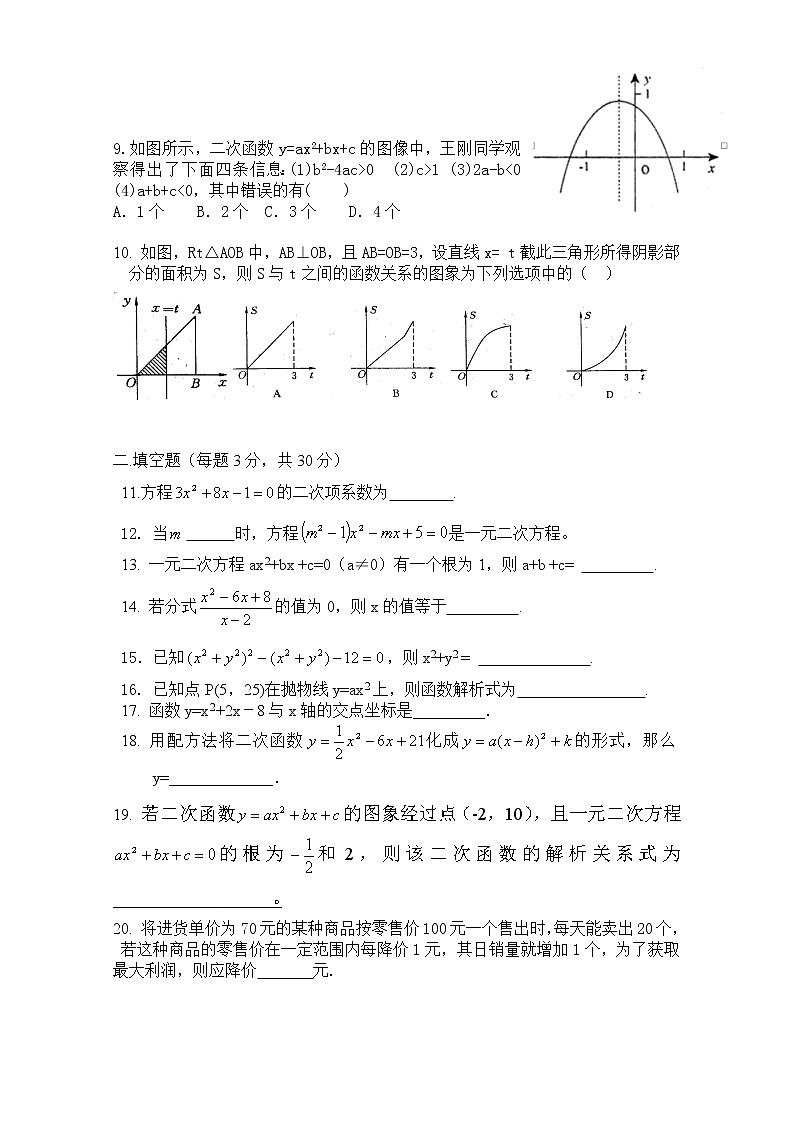 9.如图所示,二次函数y=ax²+bx+c的图像中,王刚同学观
察得出了下面四条信息:(1)b²-4ac>0 (2)c>1 (3)2a-b<0
(4)a+b+c<0,其中错误的有( )
A. 1个 B. 2个 C. 3个 D. 4个
y
1
-1 O 1 x
10. 如图,Rt△AOB中,AB⊥OB,且AB=OB=3,设直线x= t截此三角形所得阴影部
分的面积为S,则S与t之间的函数关系的图象为下列选项中的( )
y x=t A
O B x
S
O 3 t
A
S
O 3 t
B
S
O 3 t
C
S
O 3 t
D
二.填空题(每题3分,共30分)
11.方程3x²+8x-1=0的二次项系数为________.
12. 当m ______时,方程(m²-1)x²-mx+5=0是一元二次方程。
13. 一元二次方程ax²+bx +c=0(a≠0)有一个根为1,则a+b +c= _________.
14. 若分式(x²-6x+8)/(x-2)的值为0,则x的值等于_________.
15. 已知(x²+y²)²-(x²+y²)-12=0,则x²+y²= ______________.
16. 已知点P(5,25)在抛物线y=ax²上,则函数解析式为________________.
17. 函数y=x²+2x-8与x轴的交点坐标是_________.
18. 用配方法将二次函数y=1/2x²-6x+21化成y=a(x-h)²+k的形式,那么
y=_____________.
19. 若二次函数y=ax²+bx+c的图象经过点(-2,10),且一元二次方程
ax²+bx+c=0的根为-1/2和2,则该二次函数的解析关系式为
____________________。
20. 将进货单价为70元的某种商品按零售价100元一个售出时,每天能卖出20个,
若这种商品的零售价在一定范围内每降价1元,其日销量就增加1个,为了获取
最大利润,则应降价_______元.